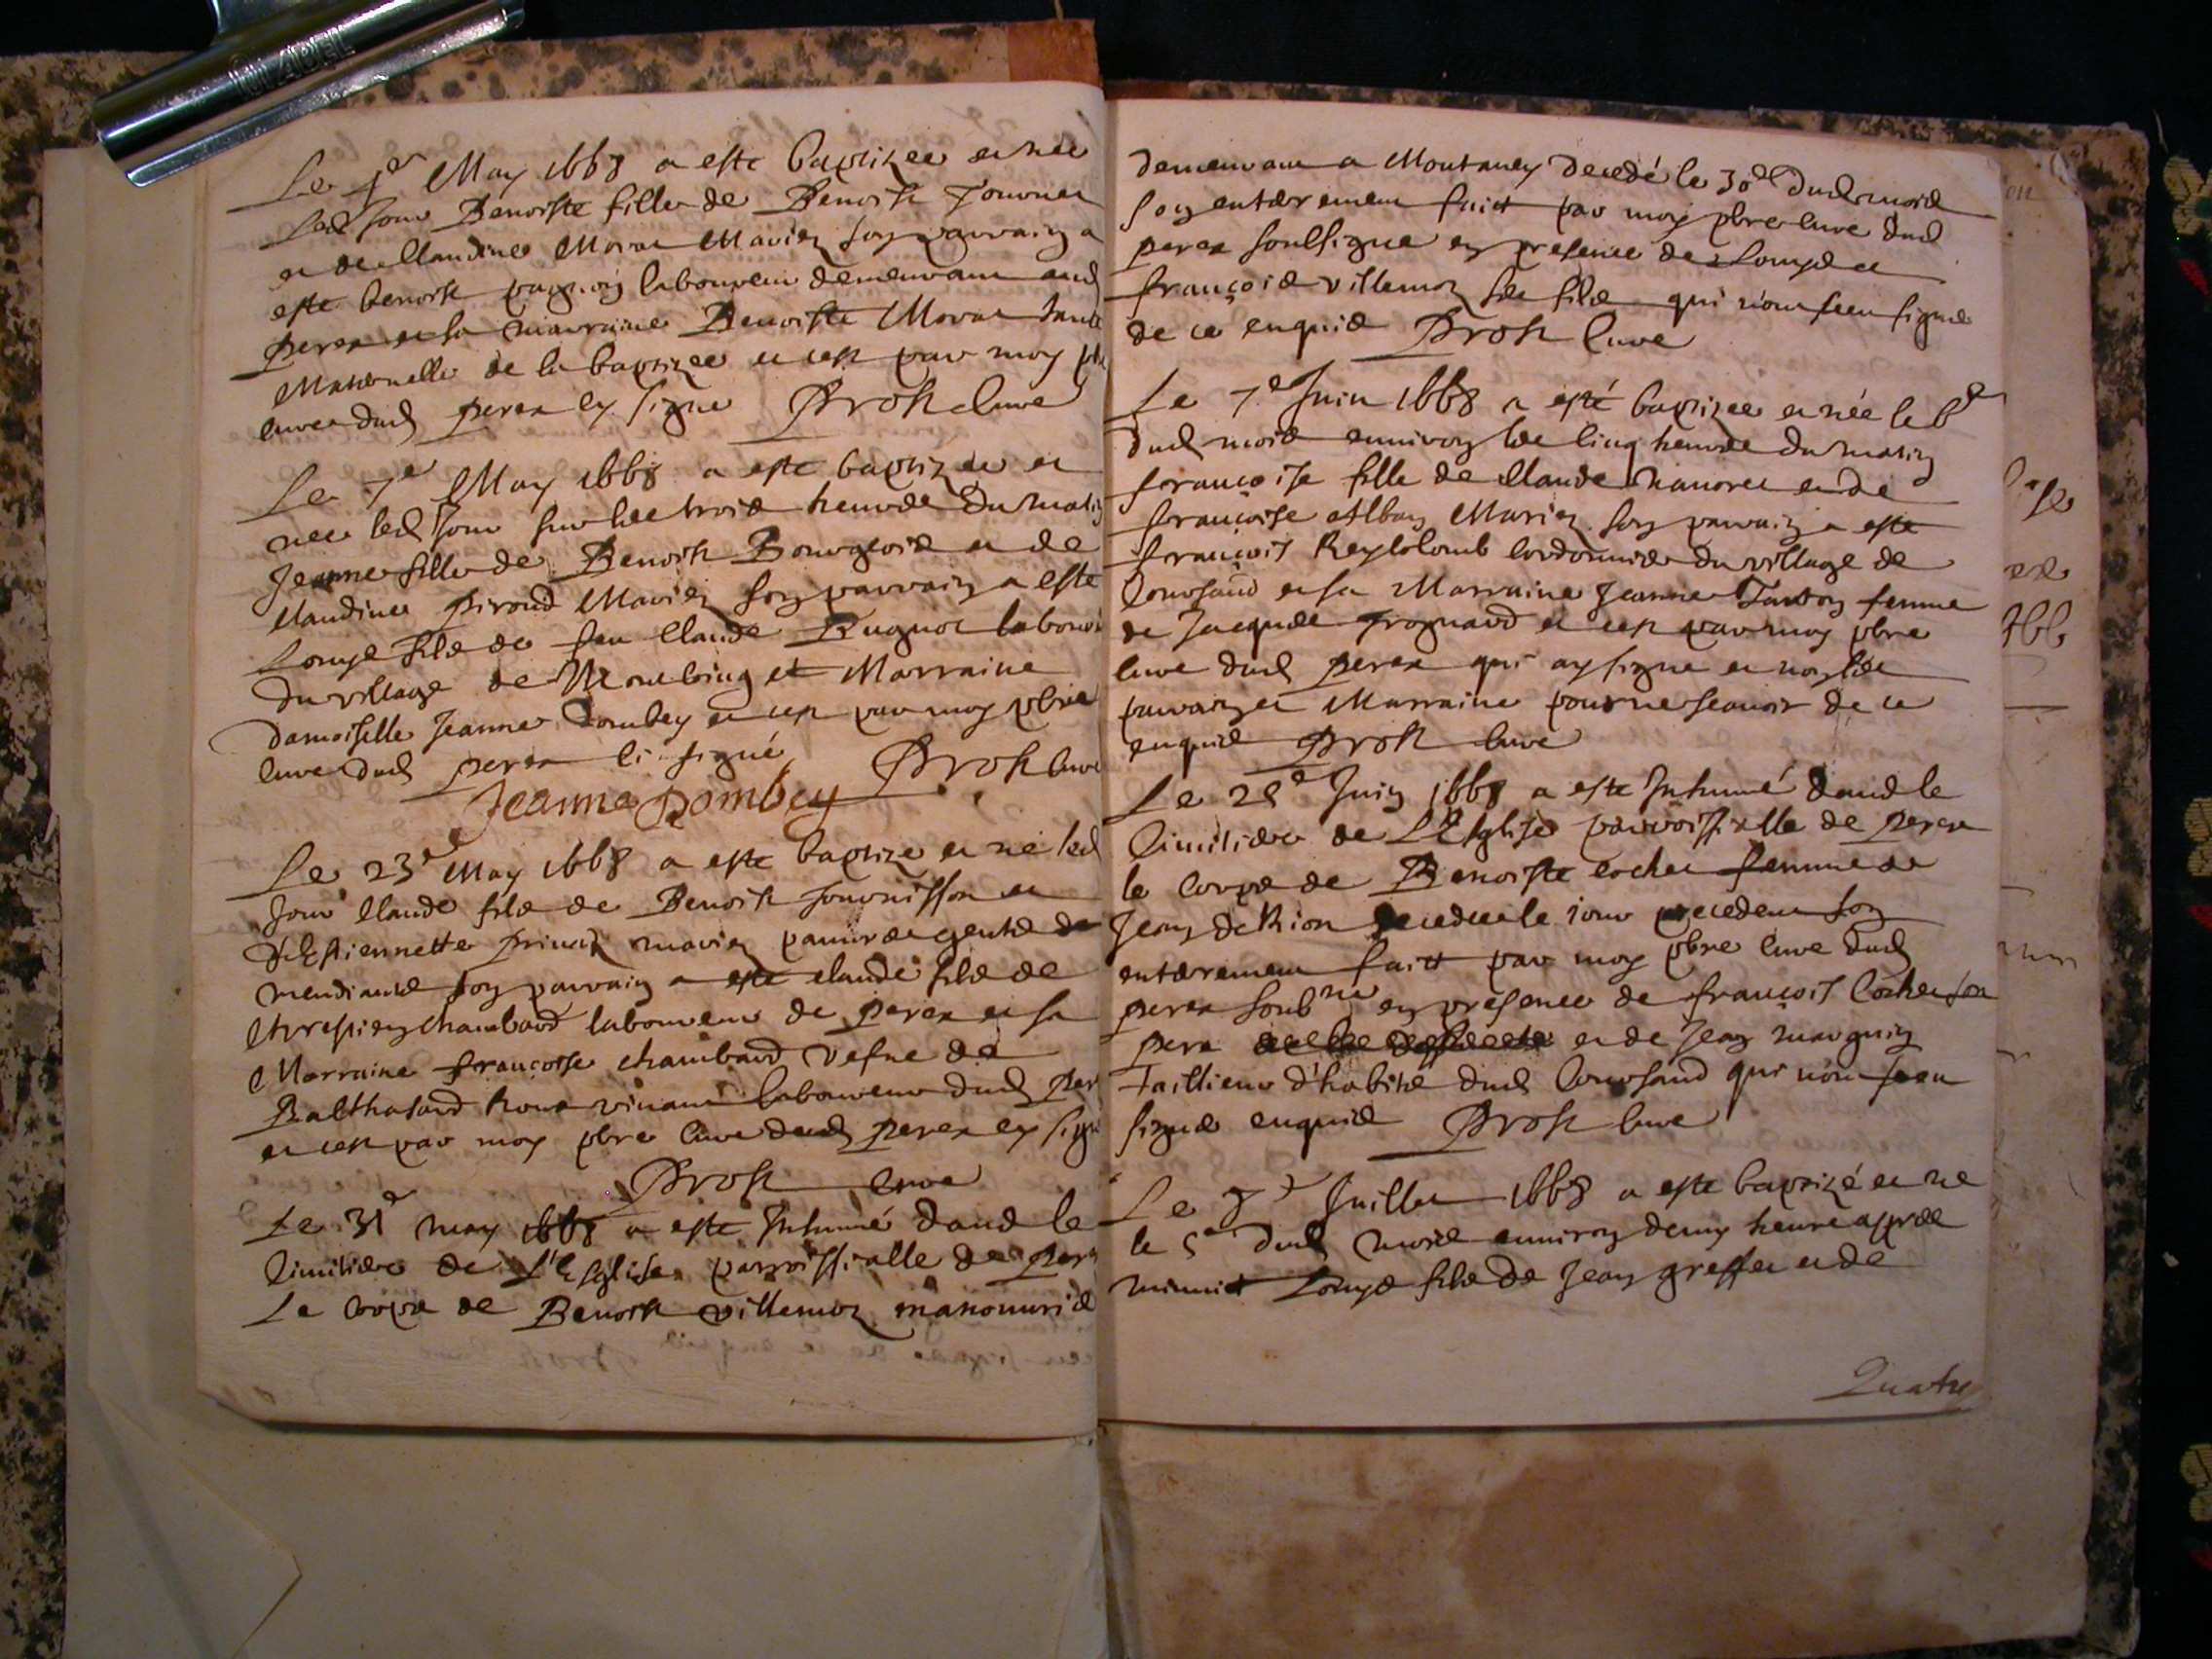 Le 4e May 1668 a esté baptizee et née
led Jour Benoiste fille de Benoist Journet
et de Claudine Morat Mariez son parrain a
esté benoist pagnon laboureur demeurant aud
perex et sa marraine Benoiste Morat tante
Maternelle de la baptizee et cest par moy pbre
cure dud perex ey signe Brost Cure
Le 7e May 1668 a esté baptizee et
nee led Jour sur les trois heures du matin
Jeanne fille de Benoist Bourgeois et de
Claudine piroud Mariez son parrain a esté
Louys fils de feu Claude Rugnot laboure
du village de et Marraine
damoiselle Jeanne Dombey et cest par moy pbre
cure dud perex ci signé Brost cure
Jeanne Dombey
Le 23e May 1668 a esté baptize et né led
Jour Claude fils de Benoist fournisson et
d'Estiennette mariez pauvres gents
mendiants son parrain a esté claude fils de
chrestien chambard laboureur de perex et sa
Marraine françoise chambard vefve de
Balthasard vivant laboureur dud per
et cest par moy pbre cure dud perex ey signé
Brost cure
Le 31e may 1668 a esté Inhumé dans le
Cimitiere de L'Esglise parroissialle de perex
Le corps de Benoist villemoz manouvrier
demeurant a Montaney decedé le 30e dud mois
son enterrement faict par moy pbre cure dud
perex soussigné en presence de Louys et
françois villemoz ses fils qui n'ont sceu signé
de ce enquis Brost Cure
Le 7e Juin 1668 a esté baptizee et née le 6e
dud mois environ les cinq heures du matin
françoise fille de Claude nanoret et de
françoise Alban Mariez son parrain a esté
françois Reycolomb cordonnier du village de
Coursand et sa Marraine Jeanne Tardy femme
de Jacques prognard et cest par moy pbre
cure dud perex qui ay signe et non les
parrain et Marraine pour ne scavoir de ce
enquis Brost cure
Le 25e Juin 1668 a esté Inhumé dans le
Cimitiere de L'Esglise parroissialle de perex
le Corps de Benoiste cochet femme de
Jean deRion decedee le jour precedent son
enterrement faict par moy pbre cure dud
perex soubné en presence de françois Cochet son
pere et de Jean marguin
Taillieur d'habits dud Coursand qui n'ont sceu
signé enquis Brost cure
Le Juillet 1668 a esté baptizé et né
le 5e dud mois environ demy heure appres
minuit Louys fils de Jean greffet et de
Quatre